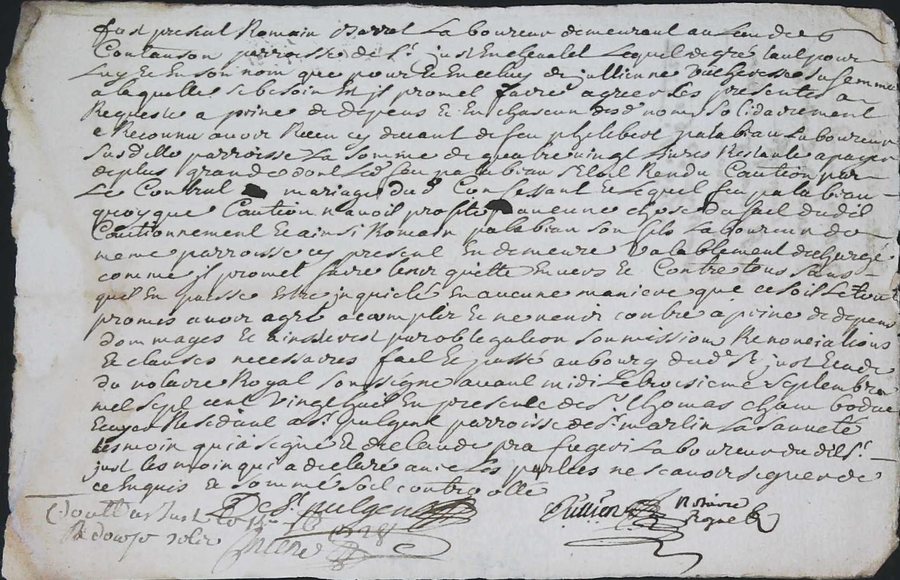 fust present Romain Barret Laboureur demeurant au Lieu de
Contanson parroisse de St. just En chevalet Lequel de gré tant pour
Luy Et en son nom que pour Et En celuy de jullienne sa femme
a laquelle se besoin Est jl promet faire agreer les presentes a
Requeste a peine de depens Et En chascun desd noms Solidairement
a Reconnu avoir Receu cy devant de feu philibert palabiau Laboureur
Susditte parroisse La somme de quatre vingt Livres Restante a payer
de plus grande dont Led feu palabiau sEtoit Rendu Caution par
Le Contrat mariage dud Confessant Et Lequel feu palabiau
quoyque Caution n'avoit profité d'aucune chose du fait dudit
Cautionnement Et ainsi Romain palabiau son fils Laboureur de
meme parroisse cy present En demeure valablement dechargé
comme jl promet faire tenir quitte Envers Et Contre tous sans
quil En puisse Estre jnquieté En aucune maniere que ce soit Le tout
promis avoir agré acomplir Et ne venir contre a peine de depens
dommages Et ainsi par obligation soumission Renonciations
Et clauses necessaires fait Et passé au bourg dud St just Etude
du notaire Royal Soussigné avant midi Le troisieme Septembre
mel sept cent vingt huit En presence de Sr. Thomas Chambodue
Ecuyer Residant a St. pulgent parroisse de St. martin La Sauveté
tesmoin qui a signé Et de Claude prafugeri Laboureur dudit St.
just tesmoin qui a declaré avec Les parties ne scavoir signer de
ce Enquis Et sommé Soit controollé
De St. pulgent